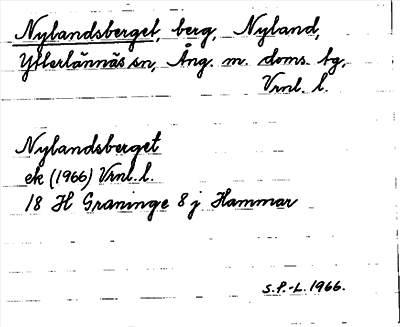 Nylandsberget, berg, Nyland,
Ytterlännäs sn, Ång. m. doms. tg,
Vrnl. l.
Nylandsberget
ek (1966) Vrnl. l.
18 H Graninge 8 j Hammar
S.P.-L. 1966.